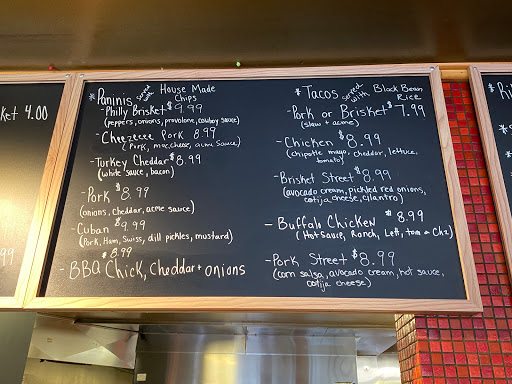 ket 4.00
99
* Paninis served with House Made Chips
- Philly Brisket $9.99
(peppers, onions, provolone, cowboy sauce)
- Cheezeeee Pork 8.99
(Pork, mac, cheese, acme sauce)
- Turkey Cheddar $8.99
(white sauce, bacon)
- Pork $8.99
(onions, cheddar, acme sauce)
- Cuban $9.99
(Pork, Ham, Swiss, dill pickles, mustard)
$8.99
- BBQ Chick, Cheddar + onions
* Tacos served with Black Bean Rice
- Pork or Brisket $7.99
(slaw + acme)
- Chicken $8.99
(chipotle mayo, cheddar, lettuce, tomato)
- Brisket Street $8.99
(avocado cream, pickled red onions, cotija cheese, cilantro)
- Buffalo Chicken $8.99
(Hot Sauce, Ranch, Lett, tom + Chz)
- Pork Street $8.99
(corn salsa, avocado cream, hot sauce, cotija cheese)